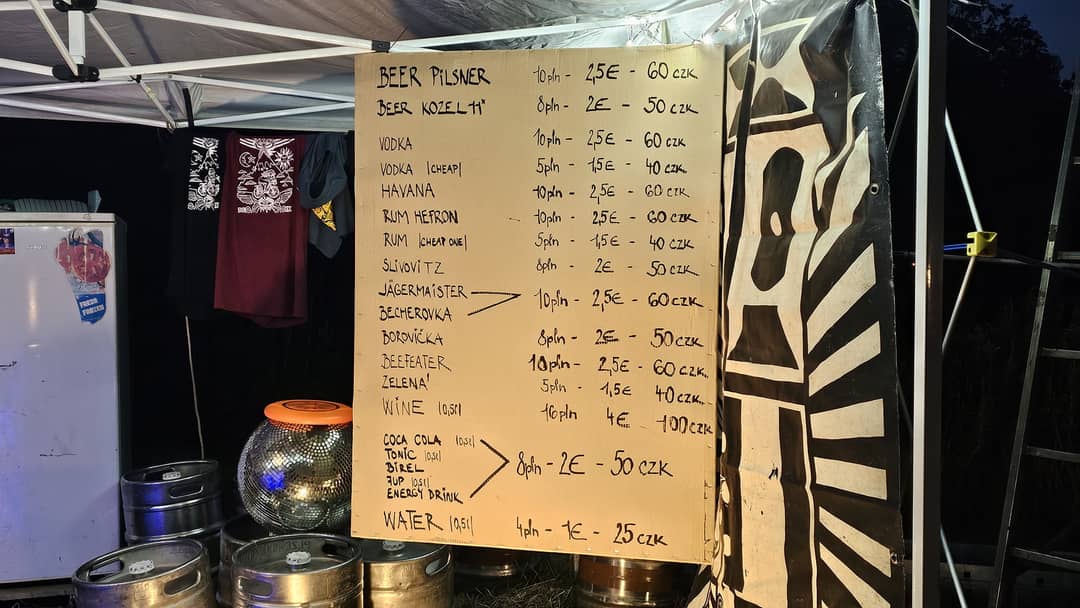 BEER PILSNER 10pln - 2,5€ - 60 CZK
BEER KOZEL 11° 8pln - 2€ - 50 CZK
VODKA 10pln - 2,5€ - 60 CZK
VODKA |CHEAP| 5pln - 1,5€ - 40 CZK
HAVANA 10pln - 2,5€ - 60 CZK
RUM HEFRON 10pln - 2,5€ - 60 CZK
RUM |CHEAP ONE| 5pln - 1,5€ - 40 CZK
SLIVOVITZ 8pln - 2€ - 50 CZK
JÄGERMAISTER
BECHEROVKA
10pln - 2,5€ - 60 CZK
BOROVIČKA 8pln - 2€ - 50 CZK
BEEFEATER 10pln - 2,5€ - 60 CZK
ZELENÁ 5pln - 1,5€ - 40 CZK
WINE |0,5l| 16pln 4€ - 100 CZK
COCA COLA |0,5l|
TONIC |0,5l|
BIREL
7UP |0,5l|
ENERGY DRINK
8pln - 2€ - 50 CZK
WATER |0,5l| 4pln - 1€ - 25 CZK